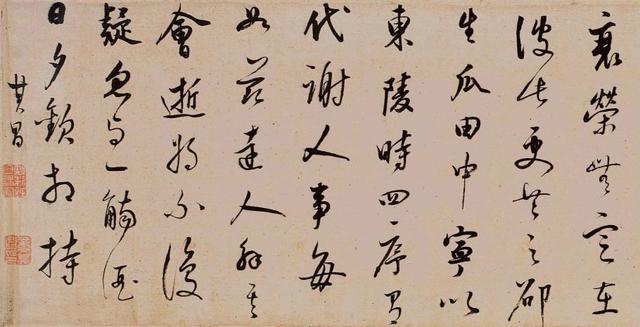 衰榮無定在
彼此更共之邵
生瓜田中寧似
東陵時四序有
代謝人事每
如茲達人解其
會逝將不復
疑忽與一觴酒
日夕歡相持
其昌